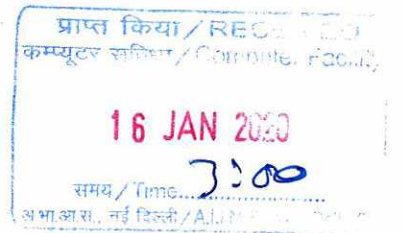 प्राप्त किया / RECEIVED
कम्प्यूटर सुविधा / Computer Facility
16 JAN 2020
समय / Time 3:00
अ.भा.आ.स., नई दिल्ली / A.I.I.M.